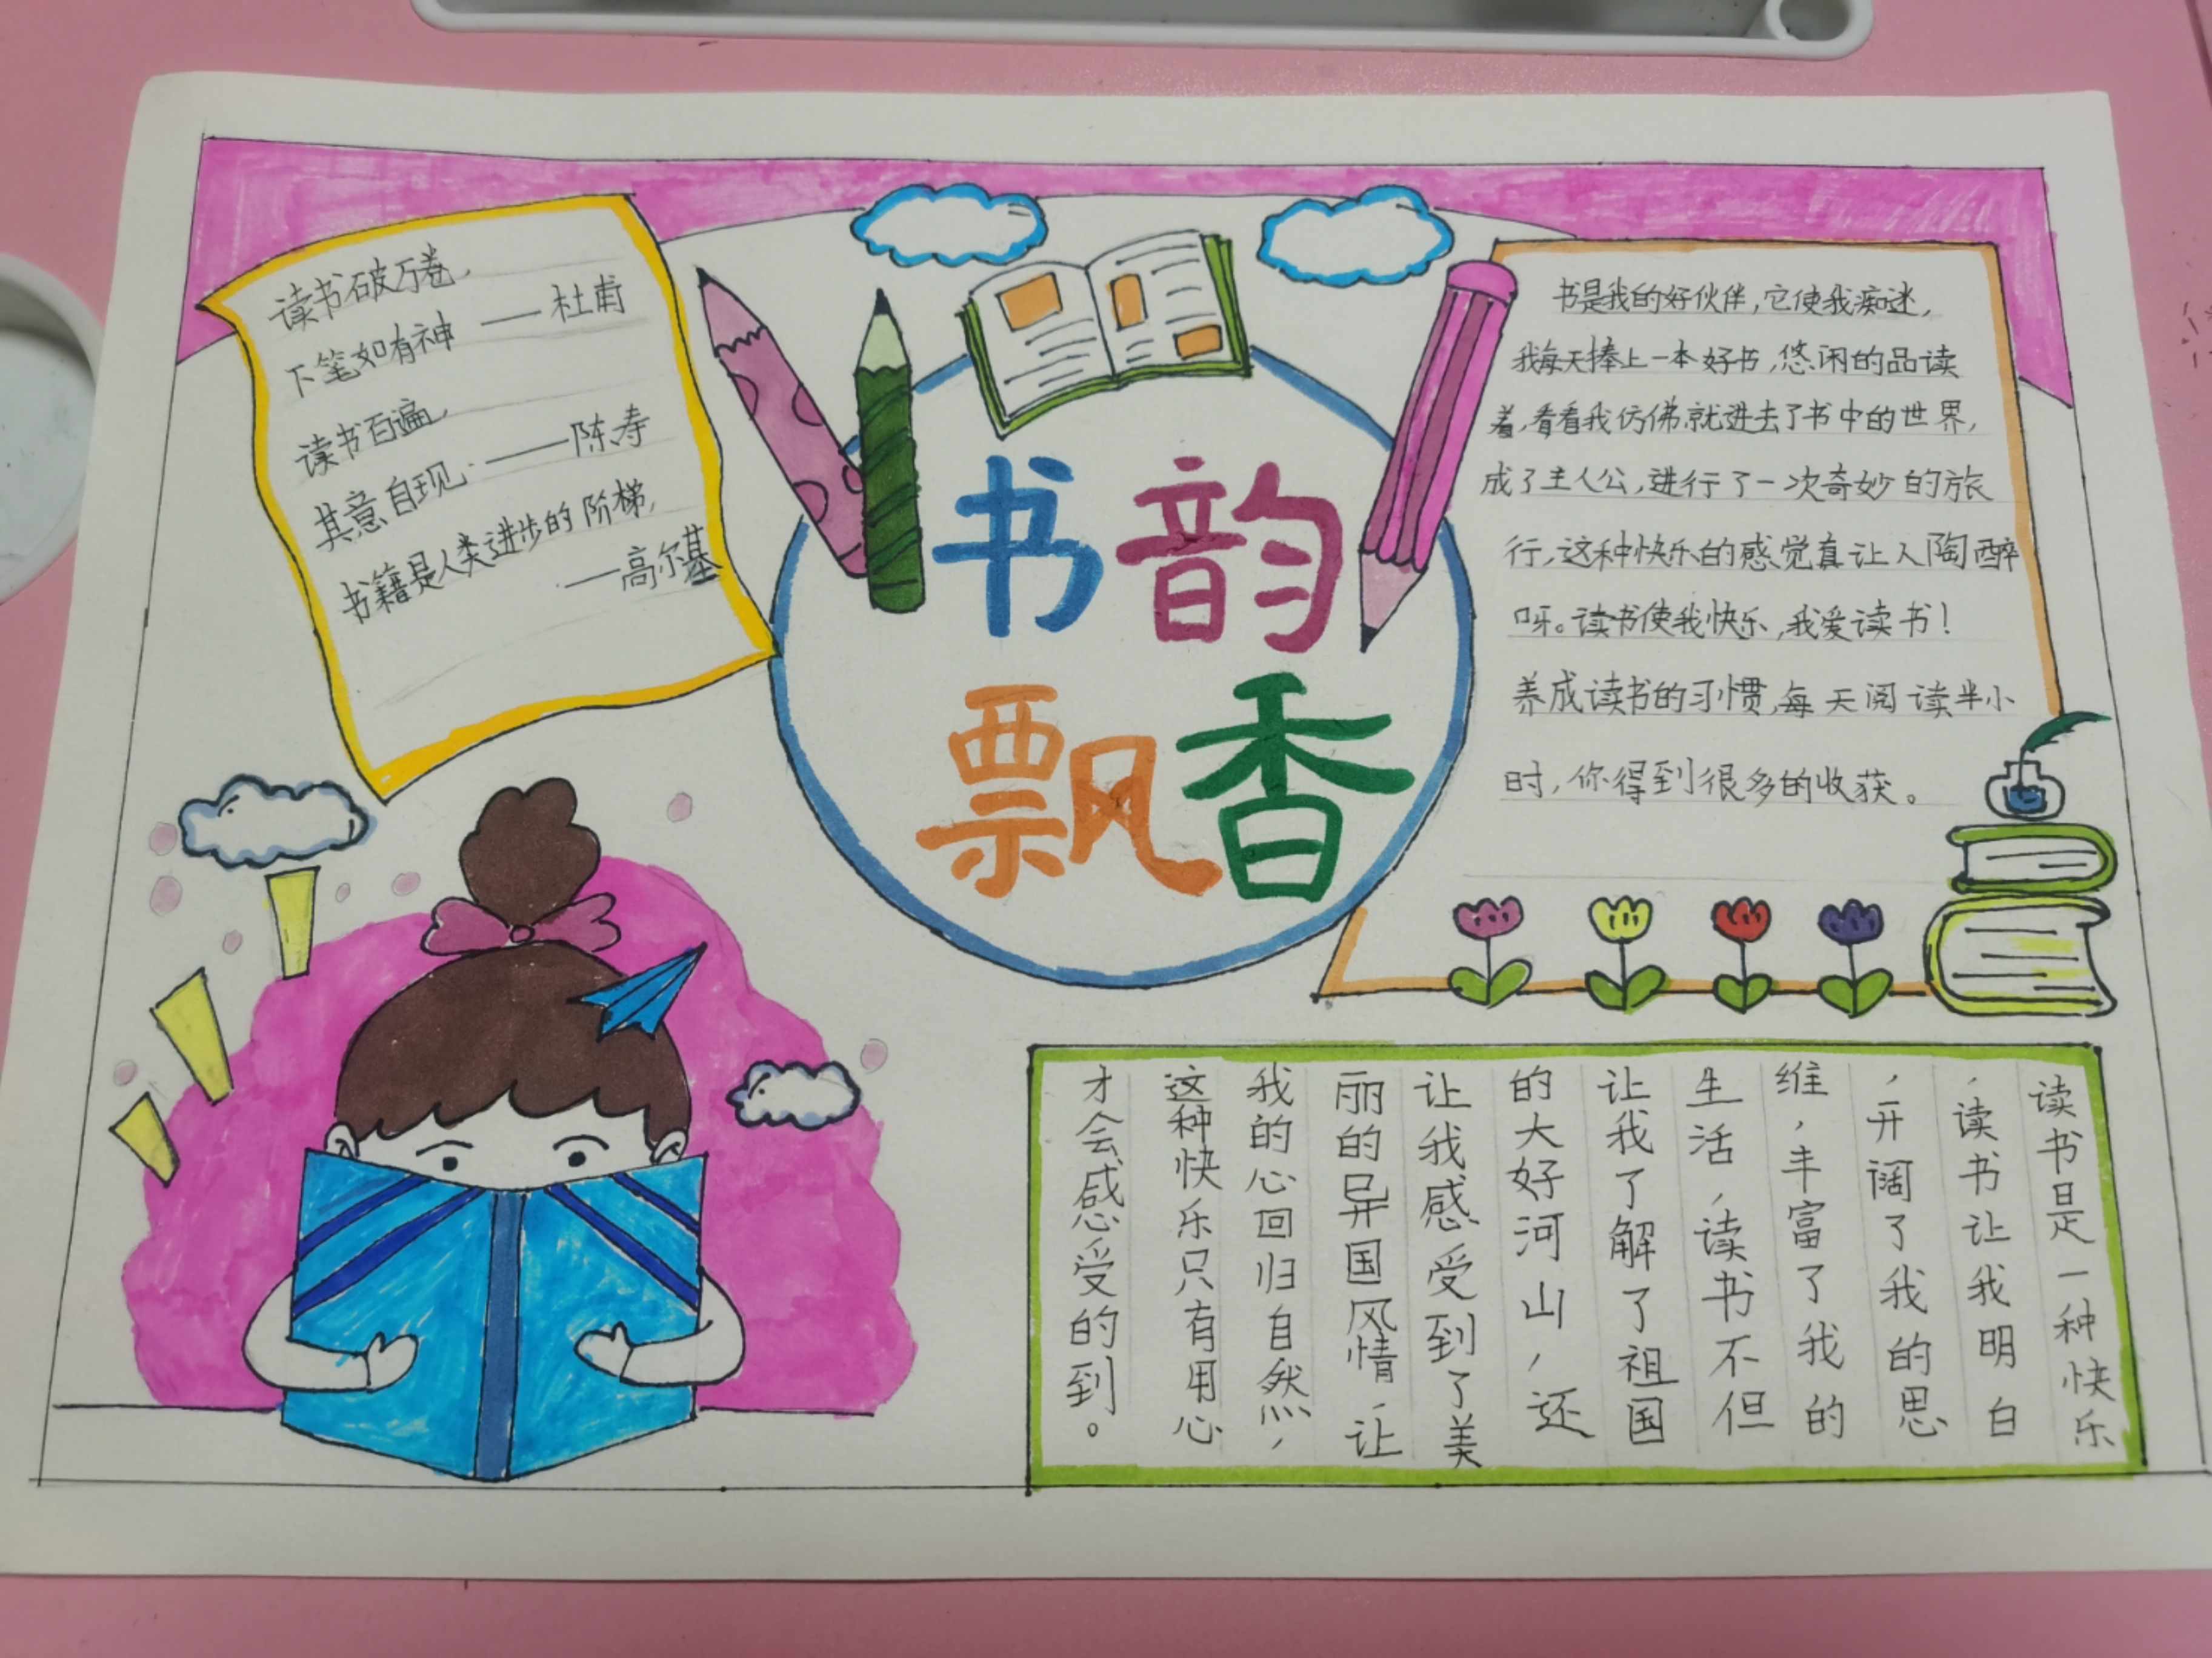 读书破万卷，
下笔如有神 ——杜甫
读书百遍，
其意自现 ——陈寿
书籍是人类进步的阶梯，
——高尔基
书韵
飘香
书是我的好伙伴，它使我痴迷，
我每天捧上一本好书，悠闲的品读
着，看看我仿佛就进去了书中的世界，
成了主人公，进行了一次奇妙的旅
行，这种快乐的感觉真让人陶醉
呀。读书使我快乐，我爱读书！
养成读书的习惯，每天阅读半小
时，你得到很多的收获。
读书是一种快乐
，读书让我明白
，开阔了我的思
维，丰富了我的
生活，读书不但
让我了解了祖国
的大好河山，还
让我感受到了美
丽的异国风情，让
我的心回归自然，
这种快乐只有用心
才会感受的到。